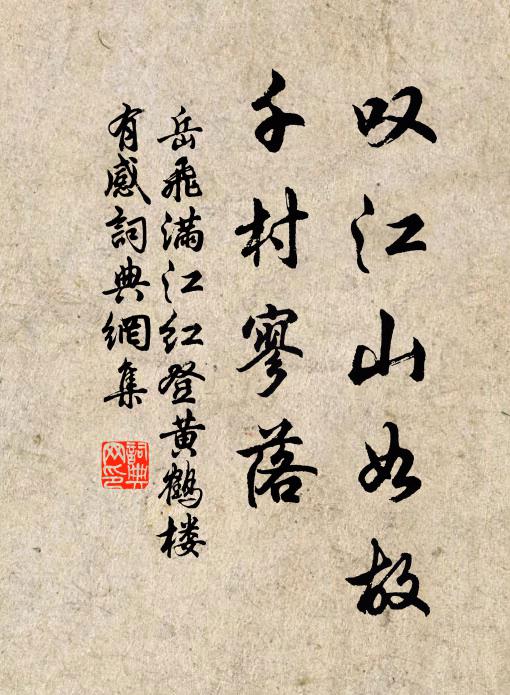 叹江山如故
千村寥落
岳飛满江红登黄鹤楼
有感詞典網集
詞典
网印